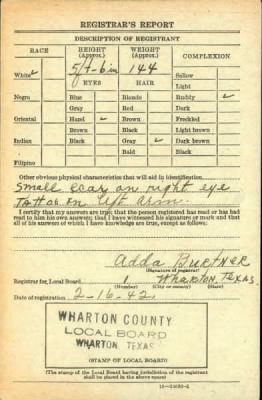 REGISTRAR'S REPORT
DESCRIPTION OF REGISTRANT
RACE HEIGHT (Approx.) WEIGHT (Approx.) COMPLEXION
White ✓ 5/ft-6in 144 Sallow
EYES HAIR Light
Negro Blue Blonde Ruddy ✓
Gray Red Dark
Oriental Hazel ✓ Brown Freckled
Brown Black Light brown
Indian Black Gray ✓ Dark brown
Bald Black
Filipino
Other obvious physical characteristics that will aid in identification
Small scar on right eye
Tattoo on left arm.
I certify that my answers are true; that the person registered has read or has had
read to him his own answers; that I have witnessed his signature or mark and that
all of his answers of which I have knowledge are true, except as follows:
Adda Burtner
(Signature of registrar)
Registrar for Local Board Wharton, Texas
(Number) (City or county) (State)
Date of registration 2-16-42
WHARTON COUNTY
LOCAL BOARD
WHARTON, TEXAS
(STAMP OF LOCAL BOARD)
(The stamp of the Local Board having jurisdiction of the registrant
shall be placed in the above space)